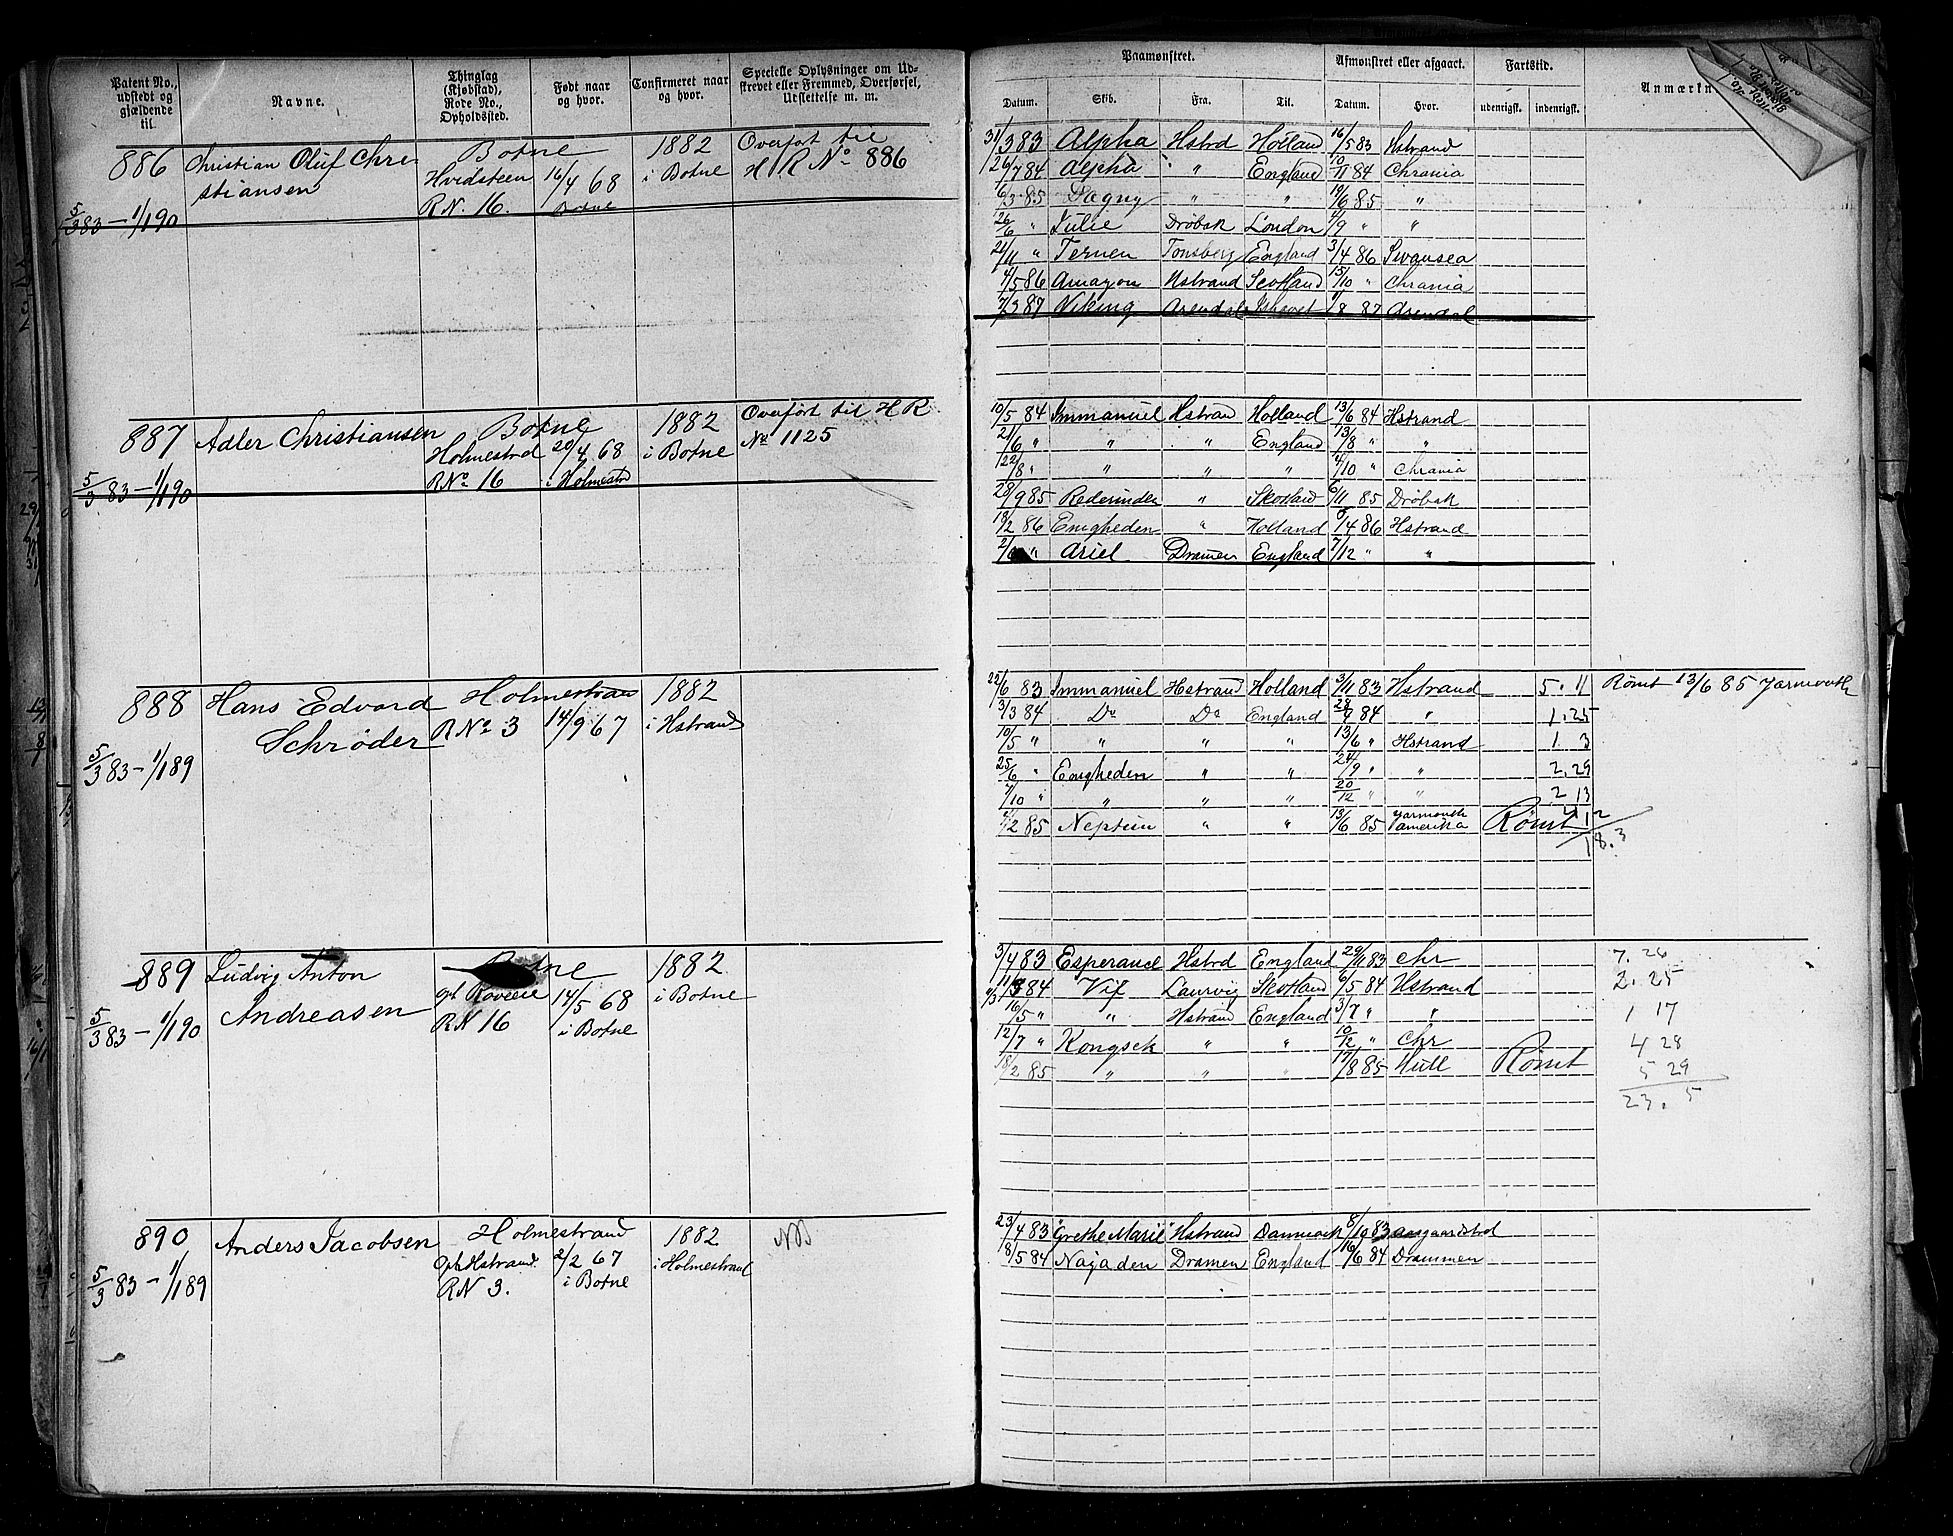 Patent No., udstedt og gjældende til.
Navne.
Thinglag (Kjøbstad), Rode No., Opholdssted.
Født naar og hvor.
Confirmeret naar og hvor.
Specielle Oplysninger om Udskrevet eller Fremmed, Overførsel, Udslettelse m. m.
886 Christian Oluf Chri Botne 1882 Overført til
stiansen Hvidsteen 16/4 68 i Botne H R No 886
5/3 83 — 1/1 90 R N. 16. Botne
887 Adler Christiansen Botne 1882 Overført til H R
Holmestrd 20/4 68 i Botne No 1125
5/3 83 — 1/1 90 R No 16 i Holmestd
888 Hans Edvard Holmestran 1882
Schrøder R No 3 14/9 67 i Hstrand
5/3 83 — 1/1 89
889 Ludvig Anton Botne 1882
Andreasen 14/5 68 i Botne
5/3 83 — 1/1 90 R N 16 i Botne
890 Anders Jacobsen Holmestrand 1882 NB
Oph Hstrand 2/2 67 i Holmestrand
5/3 83 — 1/1 89 R N 3. i Botne
Paamønstret. Afmønstret eller afgaaet. Fartstid.
Datum. Skib. Fra. Til. Datum. Hvor. udenrigsk. indenrigsk. Anmærkn
31/3 83 Alpha Hstrd Holland 16/5 83 Hstrand
26/7 84 Alpha " England 10/11 84 Chrania
6/3 85 Dagny " " 19/6 85 "
26/6 " Julie Drøbak London 4/9 " "
21/11 " Ternen Tonsberg England 3/4 86 Swansea
4/5 86 Amazon Hstrand Scotland 15/10 " Chrania
7/3 87 Viking Arendal Ishavet 1/8 87 Arendal
10/5 84 Immanuel Hstran Holland 13/6 84 Hstrand
21/6 " " " England 13/8 " "
22/8 " " " " 4/10 " Chrania
28/9 85 Rederinden " Skotland 6/11 85 Drøbak
18/2 86 Enigheden " Holland 8/4 86 Hstrand
2/6 " Ariel Dramen England 7/12 " "
22/6 83 Immanuel Hstrand Holland 3/11 83 Hstrand 5. 11 Rømt 13/6 85 Yarmouth
3/3 84 Do Do England 28/4 84 " 1. 25
10/5 " " " " 13/6 " Hstrand 1. 3
25/6 " Enigheden " " 24/9 " " 2. 29
7/10 " " " " 20/12 " " 2 13
2/2 85 Neptun " " 13/6 85 Yarmouth amerika Rømt 4 12
18. 3
3/4 83 Esperance Hstrd England 29/11 83 Chr 7. 26
11/3 84 Vif Laurvig Skotland 6/5 84 Hstrand 2. 25
16/5 " " Hstrand England 3/7 " " 1 17
12/7 " Kongsek " " 10/12 " Chr 4 28
18/2 85 " " " 17/8 85 Hull Rømt 5 29
23. 5
23/4 83 "Grethe Marie" Hstrand Danmark 8/10 83 Aasgaardstrd
18/5 84 Najaden Dramen England 16/6 84 Drammen